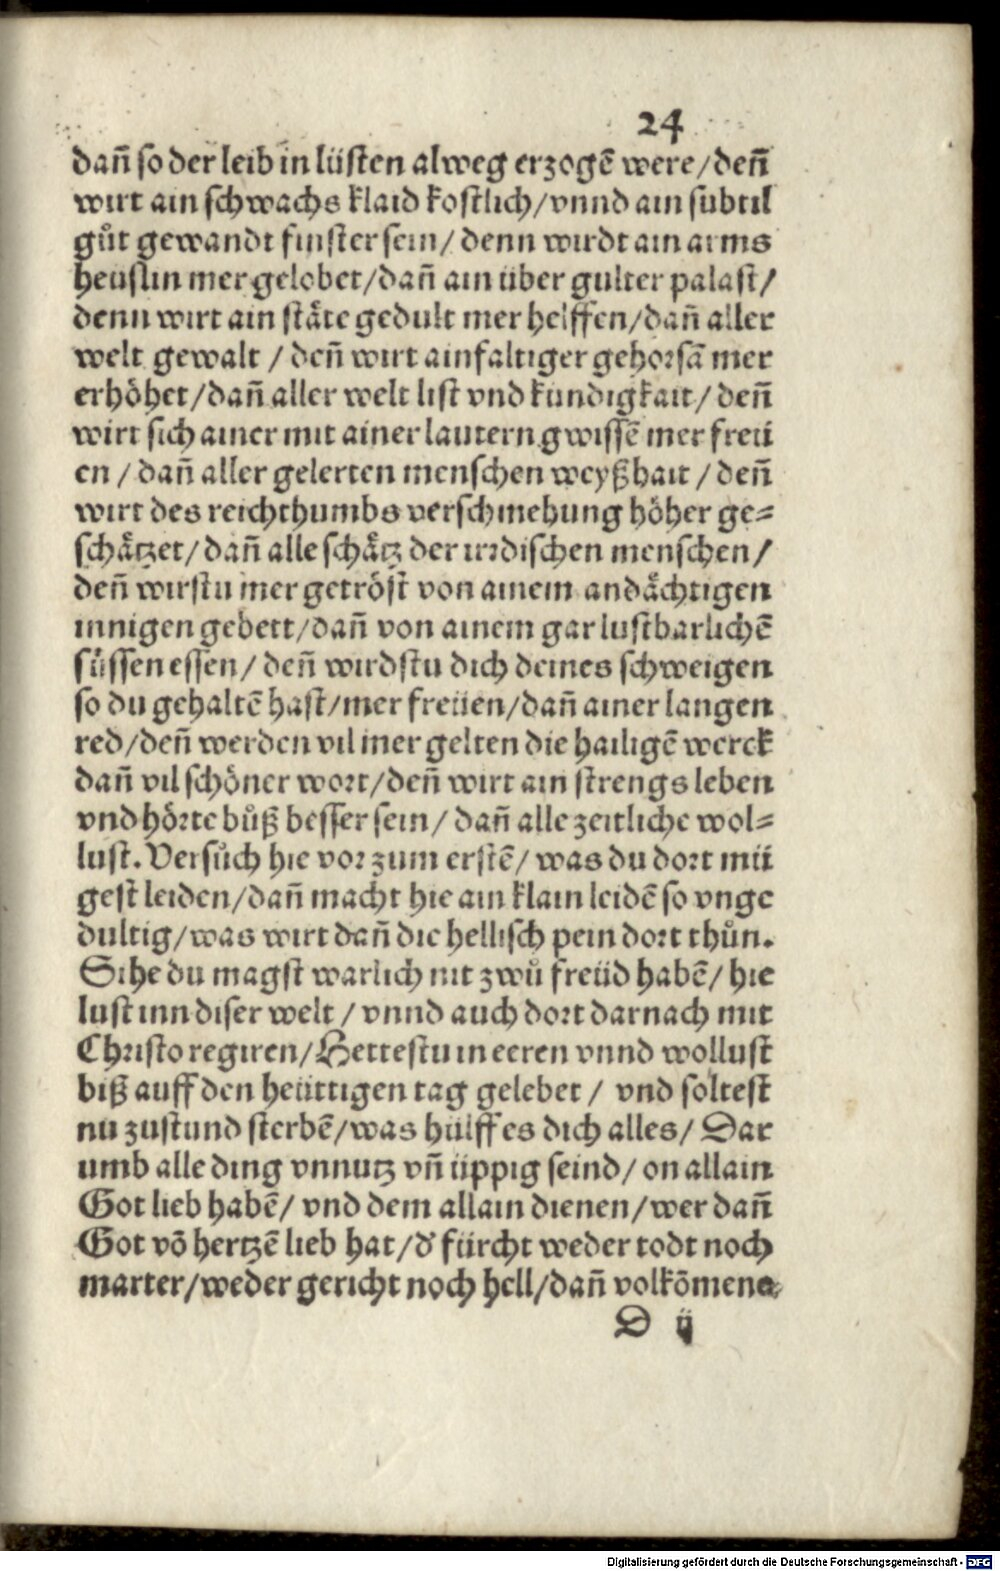 24
dañ so der leib in lüsten alweg erzogẽ were/ deñ
wirt ain schwachs klaid kostlich/ vnnd ain subtil
gůt gewandt finster sein/ denn wirdt ain arms
heuslin mer gelobet/ dañ ain über gulter palast/
denn wirt ain stäte gedult mer helffen/ dañ aller
welt gewalt / deñ wirt ainfaltiger gehorsã mer
erhöhet/ dañ aller welt list vnd kundigkait/ deñ
wirt sich ainer mit ainer lautern gwissẽ mer freü
en / dañ aller gelerten menschen weyßhait / deñ
wirt des reichthumbs verschmehung höher ge⸗
schätzet/ dañ alle schätz der irrdischen menschen/
deñ wirstu mer getröst von ainem andächtigen
innigen gebett/ dañ von ainem gar lustbarlichẽ
süssen essen/ deñ wirdstu dich deines schweigen
so du gehaltẽ hast/ mer freüen/ dañ ainer langen
red/ deñ werden vil mer gelten die hailigẽ werck
dañ vil schöner wort/ deñ wirt ain strengs leben
vnd hörte bůß besser sein/ dañ alle zeitliche wol⸗
lust. Versůch hie vor zum erstẽ/ was du dort mü
gest leiden/ dañ macht hie ain klain leidẽ so vnge
dultig/ was wirt dañ die hellisch pein dort thůn.
Sihe du magst warlich nit zwů freüd habẽ/ hie
lust inn diser welt / vnnd auch dort darnach mit
Christo regiren/ Hettestu in eeren vnnd wollust
biß auff den heüttigen tag gelebet / vnd soltest
nu zustund sterbẽ/ was hülff es dich alles/ Dar
umb alle ding vnnutz vñ üppig seind/ on allain
Got lieb habẽ/ vnd dem allain dienen/ wer dañ
Got võ hertzẽ lieb hat/ d' fürcht weder todt noch
marter/ weder gericht noch hell/ dañ volkõmene
D ij
Digitalisierung gefördert durch die Deutsche Forschungsgemeinschaft - DFG